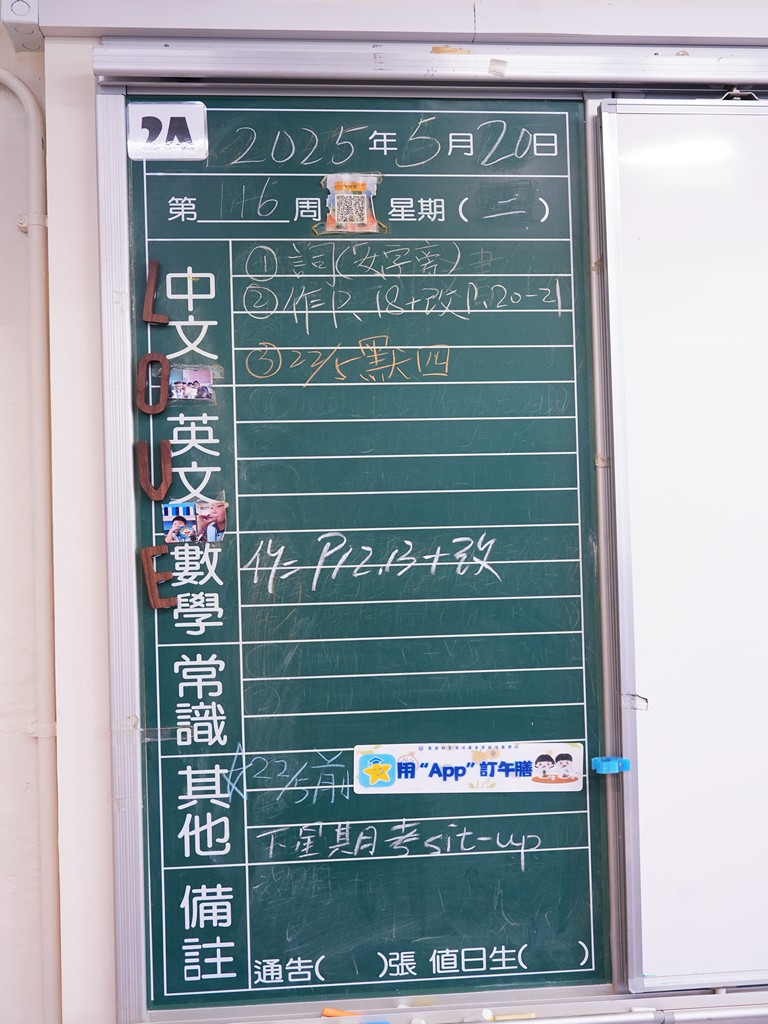 2A
2025年5月20日
第 周 星期(二)
LOVE
中文
①詞(女字旁)
②作P.18+改P.20-21
③22/5默四
英文
數學
作=P12,13+改
常識
其他
☆22/5前
用“App”訂午膳
下星期考sit-up
備註
通告( )張 值日生( )